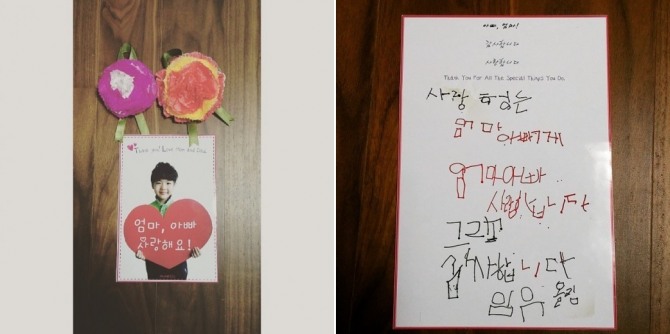 Thank and Love Mom and Dad
엄마, 아빠
사랑해요!
아빠, 엄마!
감사합니다
사랑합니다
Thank You For All The Special Things You Do
사랑 하는
엄마아빠에게
엄마아빠..
사랑합니다
그리고
감사합니다
올림